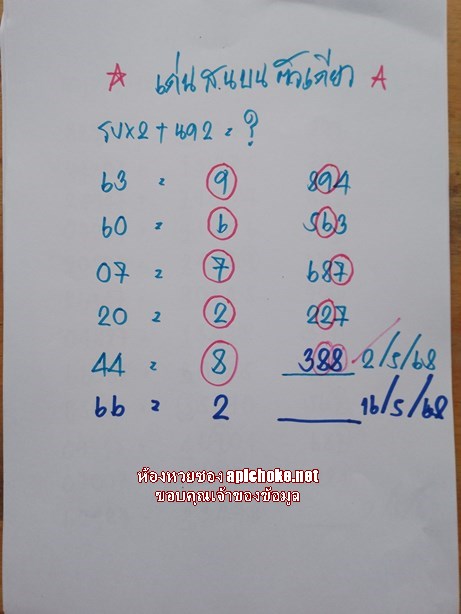 ☆ เด่น ส.นบน ตัวเดียว A
รบx2 + หาง2 = ?
63 = 9 894
60 = 6 563
07 = 7 687
20 = 2 227
44 = 8 388 2/5/68
66 = 2 ____ 16/5/68
ห้องหวยซอง apichoke.net
ขอบคุณเจ้าของข้อมูล